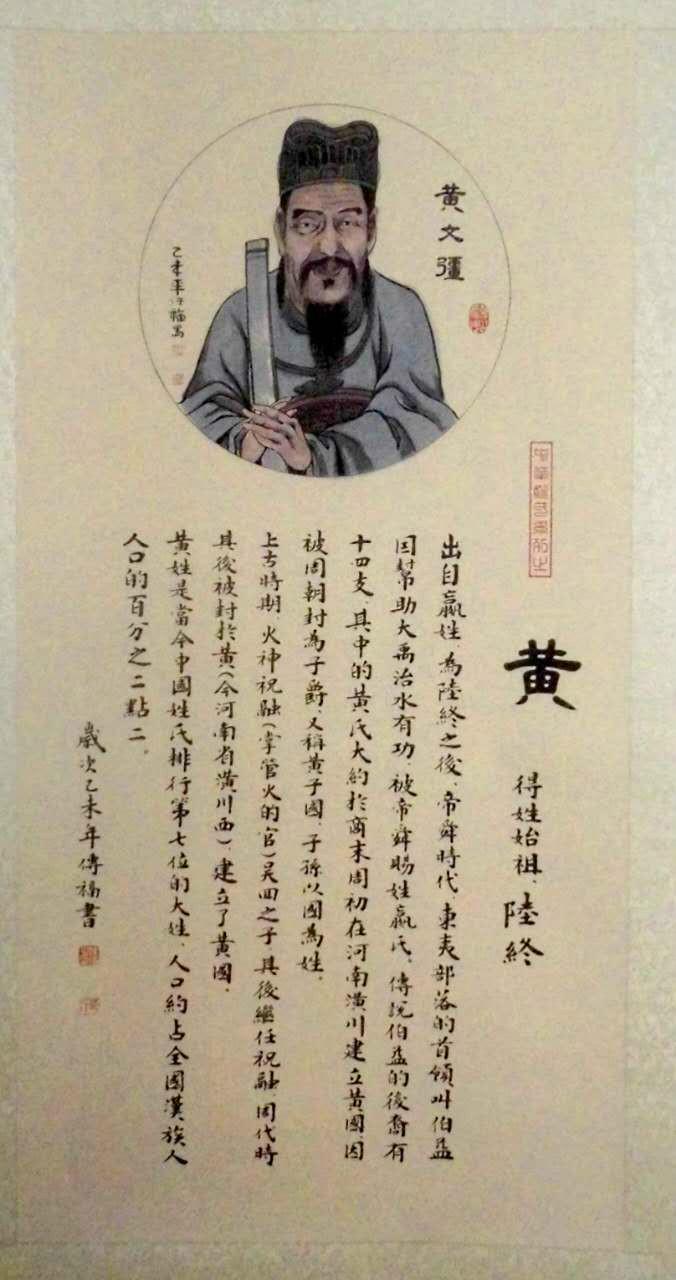 黃文彊
乙未年
黃
得姓始祖、陸終
出自嬴姓、為陸終之後、帝舜時代、東夷部落的首領叫伯益
因幫助大禹治水有功、被帝舜賜姓嬴氏、傳説伯益的後裔有
十四支、其中的黃氏大約於商末周初在河南潢川建立黃國因
被周朝封為子爵、又稱黃子國、子孫以國為姓、
上古時期、火神祝融(掌管火的官)吴回之子、其後繼任祝融、周代時
其後被封於黃(今河南省潢川西)、建立了黃國、
黃姓是當今中國姓氏排行第七位的大姓、人口約占全國漢族人
人口的百分之二點二。
歲次乙未年傳福書